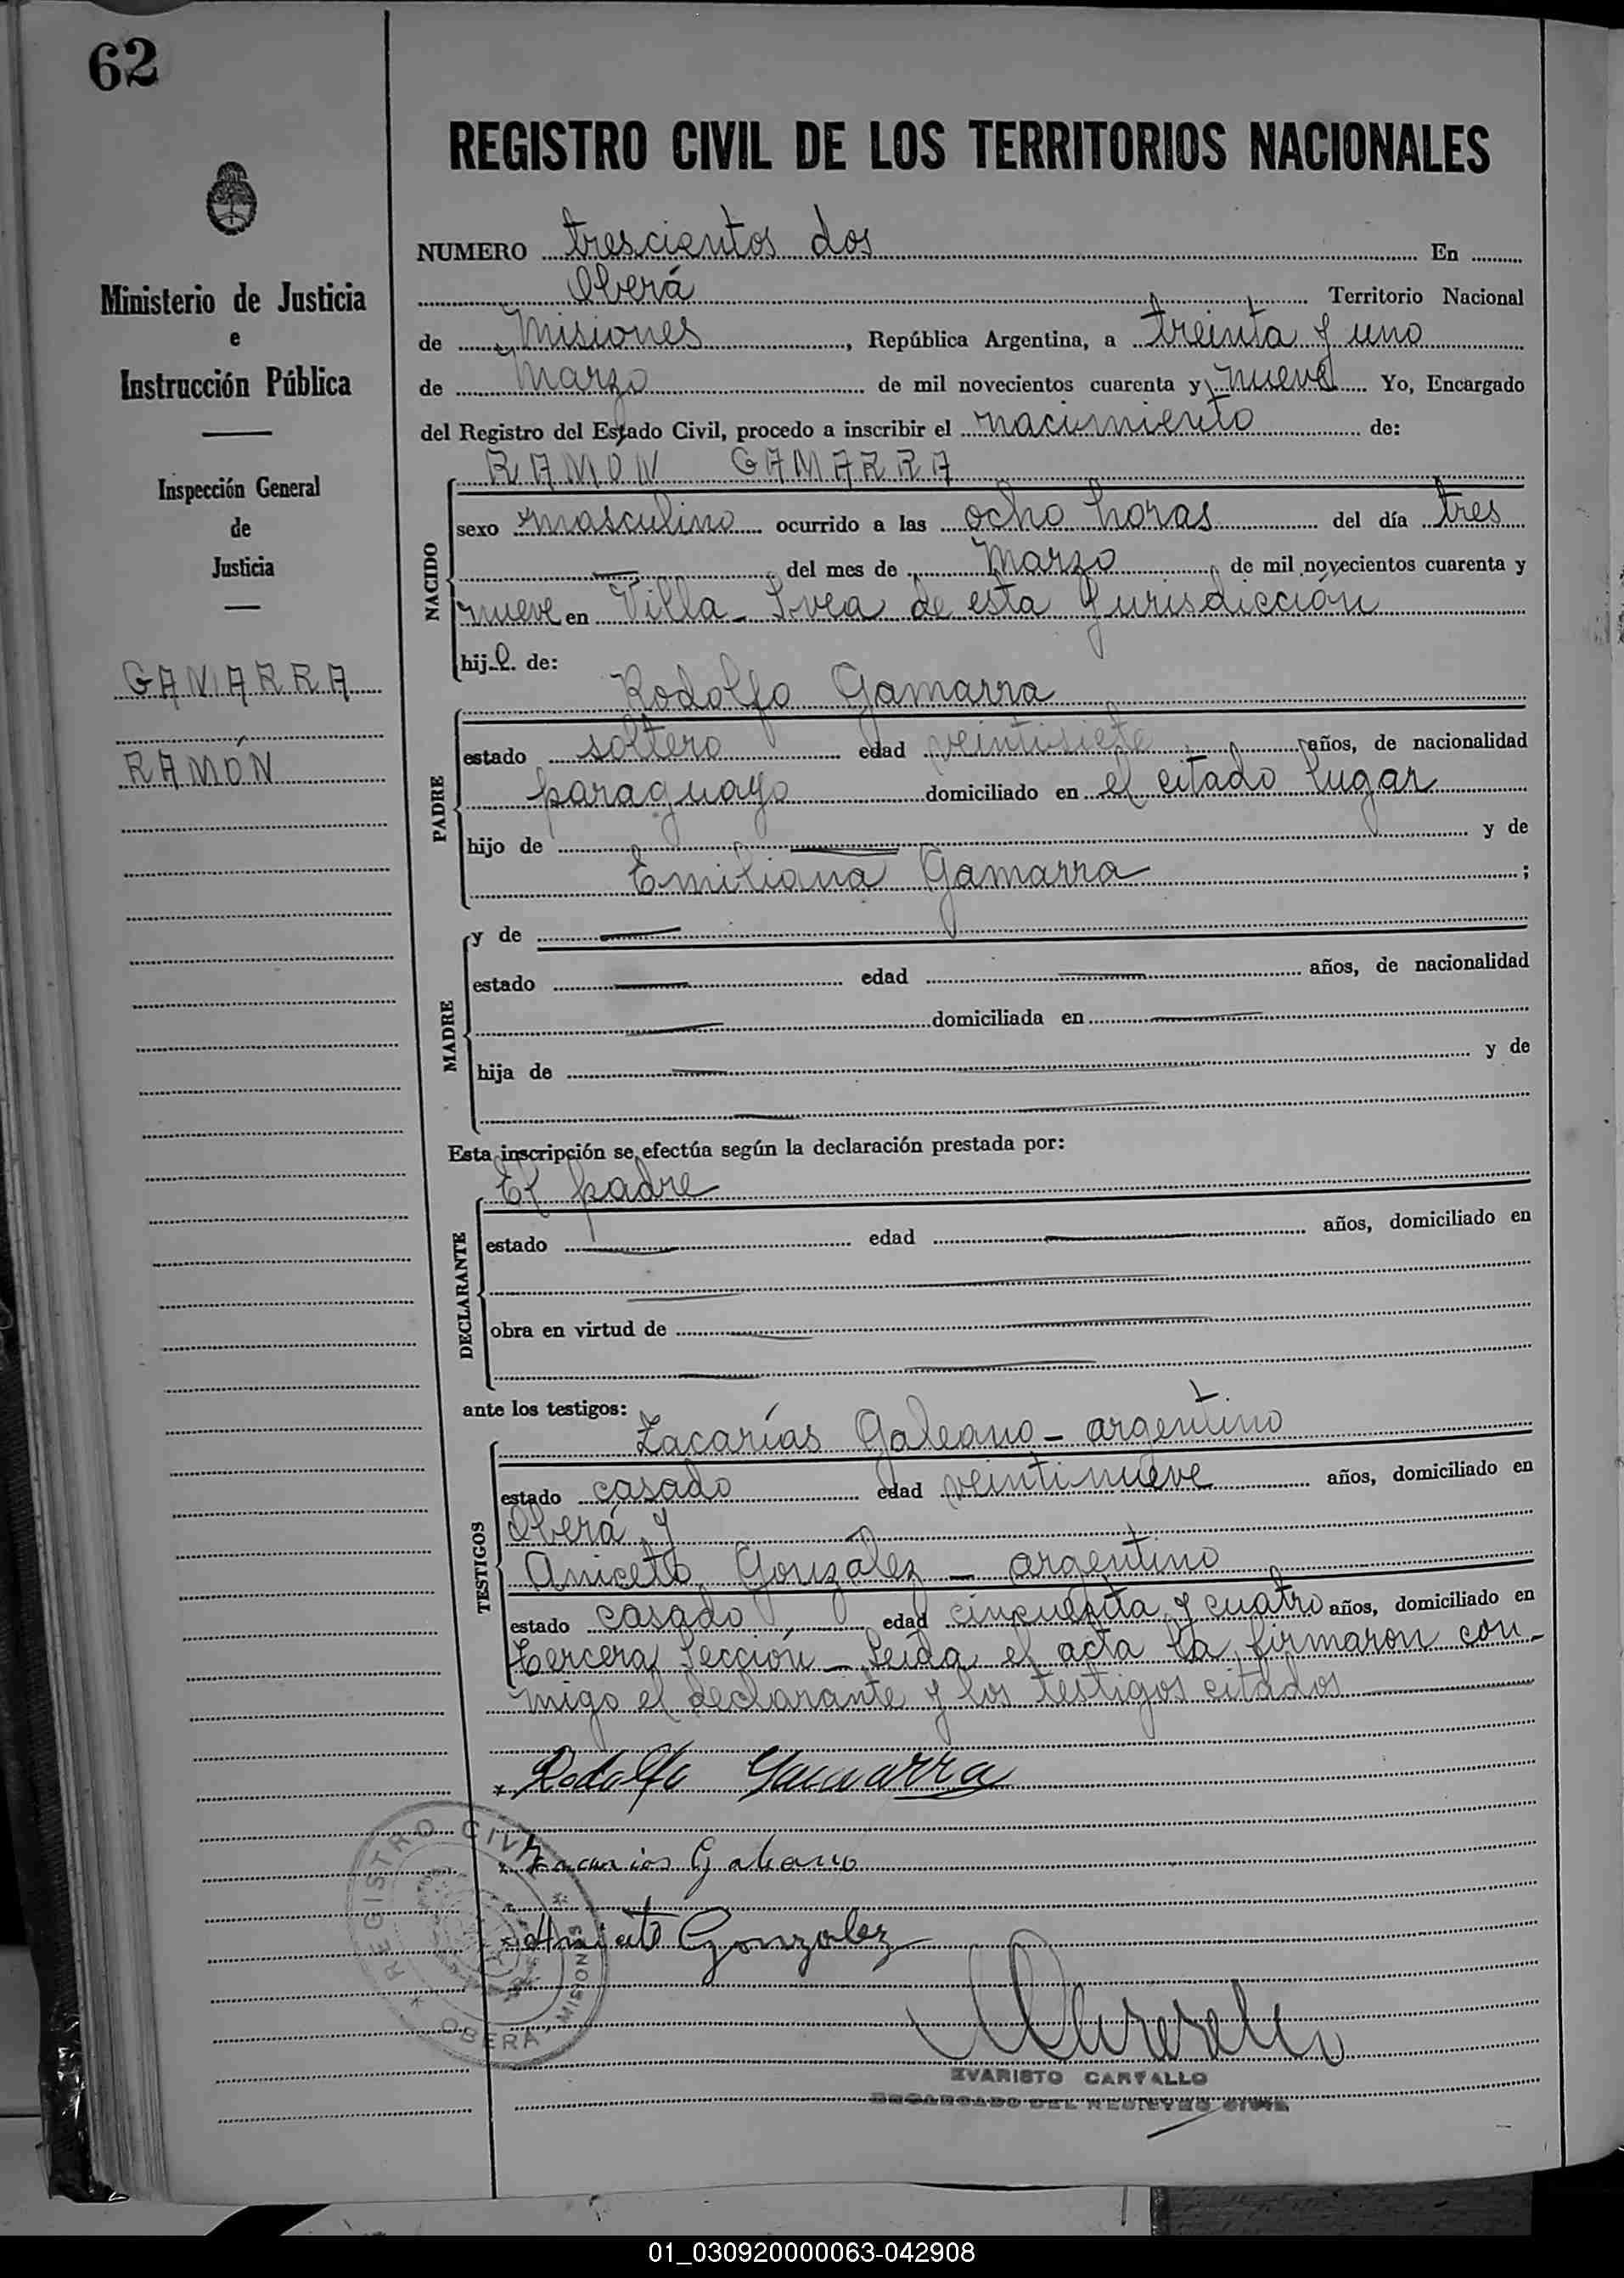 62
REGISTRO CIVIL DE LOS TERRITORIOS NACIONALES
Ministerio de Justicia
e
Instrucción Pública
Inspección General
de
Justicia
GAMARRA
RAMÓN
NUMERO trescientos dos En
Oberá Territorio Nacional
de Misiones, República Argentina, a treinta y uno
de Marzo de mil novecientos cuarenta y nueve Yo, Encargado
del Registro del Estado Civil, procedo a inscribir el nacimiento de:
RAMÓN GAMARRA
NACIDO
sexo masculino ocurrido a las ocho horas del día tres
— del mes de Marzo de mil novecientos cuarenta y
nueve en Villa Svea de esta Jurisdicción
hijo de:
Rodolfo Gamarra
PADRE
estado soltero edad veintisiete años, de nacionalidad
paraguayo domiciliado en el citado lugar
hijo de — y de
Emiliana Gamarra ;
MADRE
y de —
estado — edad — años, de nacionalidad
— domiciliada en —
hija de — y de
—
Esta inscripción se efectúa según la declaración prestada por:
El padre
DECLARANTE
estado — edad — años, domiciliado en
—
obra en virtud de —
—
ante los testigos:
Zacarías Galeano - argentino
TESTIGOS
estado casado edad veintinueve años, domiciliado en
Oberá y
Aniceto González - argentino
estado casado edad cincuenta y cuatro años, domiciliado en
tercera Sección - Leída el acta la firmaron con-
migo el declarante y los testigos citados
Rodolfo Gamarra
Zacarias Galeano
Aniceto Gonzalez
REGISTRO CIVIL
OBERÁ, MISIONES
EVARISTO CARVALLO
ENCARGADO DEL REGISTRO CIVIL
01_030920000063-042908